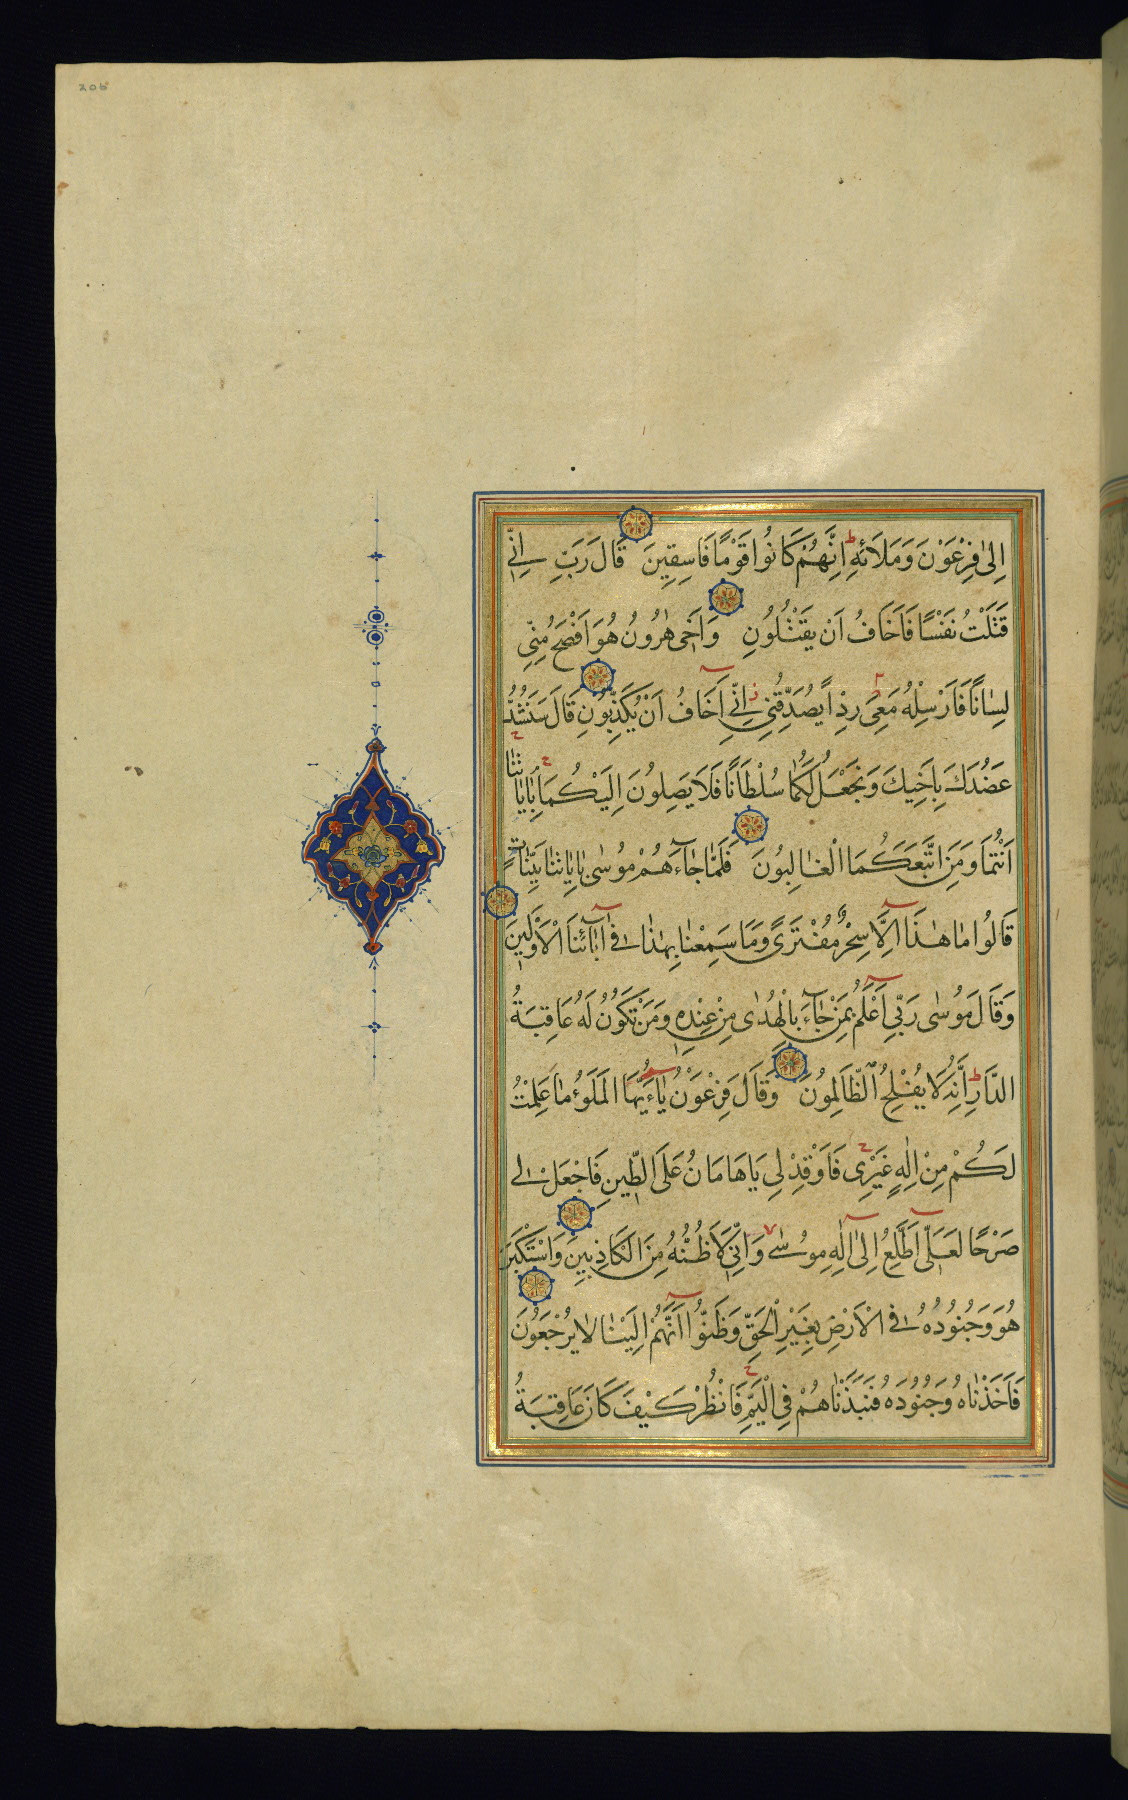 206
اِلىٰ فِرْعَوْنَ وَمَلَائِهِ ط اِنَّهُمْ كَانُوا قَوْمًا فَاسِقِينَ قَالَ رَبِّ اِنِّي
قَتَلْتُ نَفْسًا فَاَخَافُ اَنْ يَقْتُلُونِ وَاَخِى هٰرُونُ هُوَ اَفْصَحُ مِنِّى
لِسَانًا فَاَرْسِلْهُ مَعِىَ رِدْءاً يُصَدِّقُنِي ز اِنِّي اَخَافُ اَنْ يُكَذِّبُونِ قَالَ سَنَشُدُّ
عَضُدَكَ بِاَخِيكَ وَنَجْعَلُ لَكُمَا سُلْطَانًا فَلَا يَصِلُونَ اِلَيْكُمَا بِاٰيَاتِنَا
اَنْتُمَا وَمَنِ اتَّبَعَكُمَا الْغَالِبُونَ فَلَمَّا جَاءَهُمْ مُوسٰى بِاٰيَاتِنَا بَيِّنَاتٍ
قَالُوا مَا هٰذَا اِلَّا سِحْرٌ مُفْتَرىً وَمَا سَمِعْنَا بِهٰذَا فِي اٰبَائِنَا الْاَوَّلِينَ
وَقَالَ مُوسٰى رَبِّي اَعْلَمُ بِمَنْ جَاءَ بِالْهُدٰى مِنْ عِنْدِهِ وَمَنْ تَكُونُ لَهُ عَاقِبَةُ
الدَّارِ ط اِنَّهُ لَا يُفْلِحُ الظَّالِمُونَ وَقَالَ فِرْعَوْنُ يَاءَيُّهَا الْمَلَؤُ مَا عَلِمْتُ
لَكُمْ مِنْ اِلٰهٍ غَيْرِى فَاَوْقِدْ لِي يَاهَامَانُ عَلَى الطِّينِ فَاجْعَلْ لِي
صَرْحًا لَعَلِّي اَطَّلِعُ اِلىٰ اِلٰهِ مُوسٰى وَاِنِّي لَاَظُنُّهُ مِنَ الْكَاذِبِينَ وَاسْتَكْبَرَ
هُوَ وَجُنُودُهُ فِي الْاَرْضِ بِغَيْرِ الْحَقِّ وَظَنُّوا اَنَّهُمْ اِلَيْنَا لَا يُرْجَعُونَ
فَاَخَذْنَاهُ وَجُنُودَهُ فَنَبَذْنَاهُمْ فِي الْيَمِّ فَانْظُرْ كَيْفَ كَانَ عَاقِبَةُ